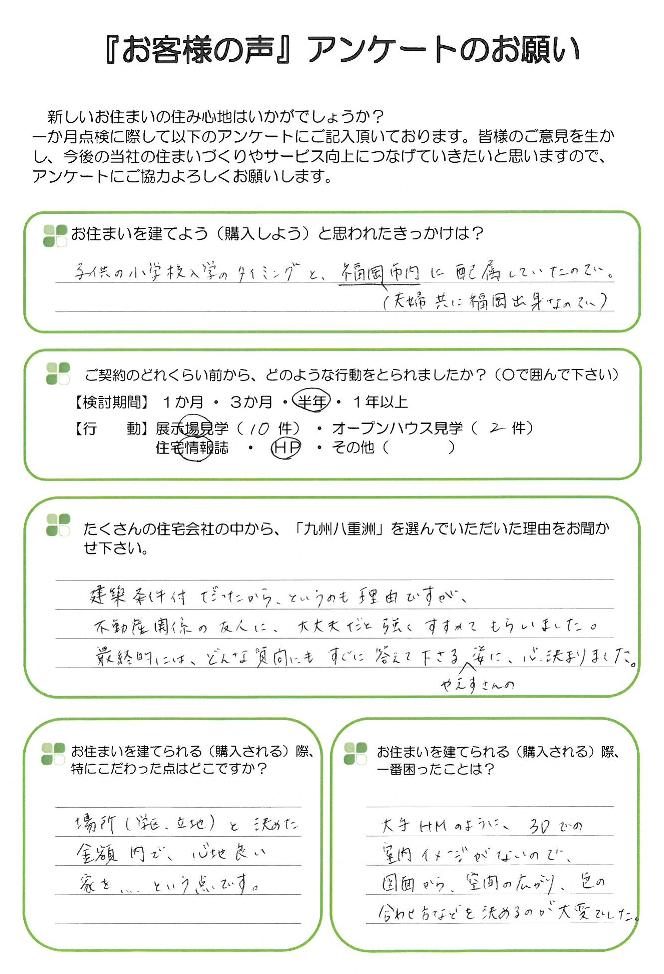 『お客様の声』アンケートのお願い
新しいお住まいの住み心地はいかがでしょうか？
一か月点検に際して以下のアンケートにご記入頂いております。皆様のご意見を生か
し、今後の当社の住まいづくりやサービス向上につなげていきたいと思いますので、
アンケートにご協力よろしくお願いします。
お住まいを建てよう（購入しよう）と思われたきっかけは？
子供の小学校入学のタイミングと、福岡市内に配属していたので。
（夫婦共に福岡出身なので）
ご契約のどれくらい前から、どのような行動をとられましたか？（〇で囲んで下さい）
【検討期間】 １か月 ・ ３か月 ・ 半年 ・ １年以上
【行　　動】 展示場見学（ 10 件） ・ オープンハウス見学（ 2 件）
住宅情報誌 ・ ＨＰ ・ その他（　　　　）
たくさんの住宅会社の中から、「九州八重洲」を選んでいただいた理由をお聞か
せ下さい。
建築条件付だったから、というのも理由ですが、
不動産関係の友人に、大丈夫だと強くすすめてもらいました。
最終的には、どんな質問にもすぐに答えて下さる姿に、心決まりました。
やえすさんの
お住まいを建てられる（購入される）際、
特にこだわった点はどこですか？
場所（学区、立地）と決めた
金額内で、心地良い
家を… という点です。
お住まいを建てられる（購入される）際、
一番困ったことは？
大手HMのように、3Dでの
室内イメージがないので、
図面から、空間の広がり、色の
合わせ方などを決めるのが大変でした。